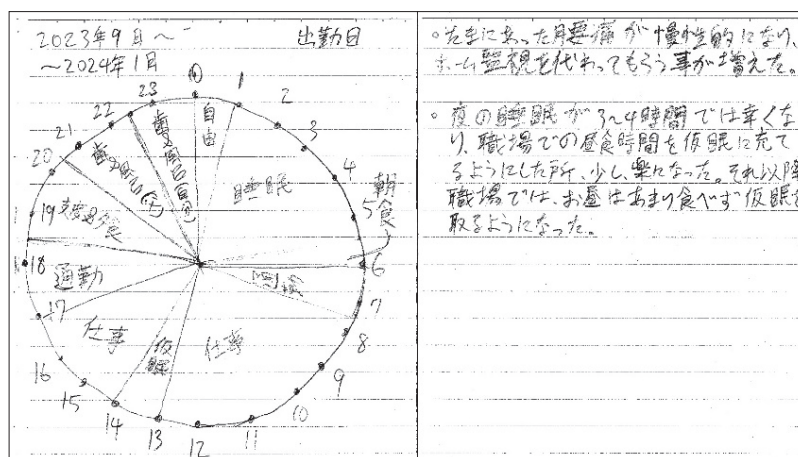 2023年9月~
~2024年1月
出勤日
0
1
2
3
4
5
6
7
8
9
10
11
12
13
14
15
16
17
18
19
20
21
22
23
自由
睡眠
朝食
仕事
仮眠
仕事
通勤
。たまにあった腰痛が慢性的になり、
ホーム監視を代わってもらう事が増えた。
。夜の睡眠が3~4時間では辛くな
り、職場での昼食時間を仮眠に充て
るようにした所、少し楽になった。それ以降
職場では、お昼はあまり食べず仮眠を
取るようになった。